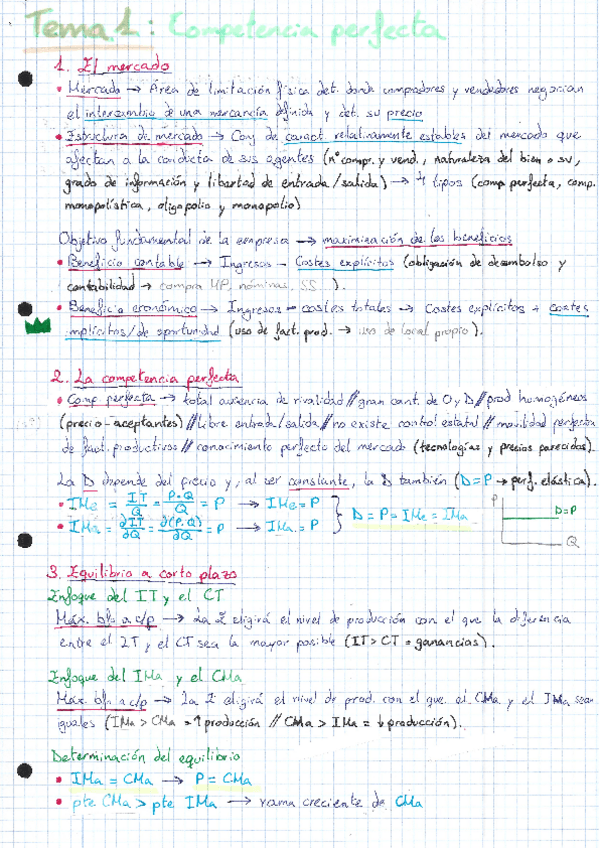 Tema 1: Competencia perfecta
1. El mercado
• Mercado → Área de limitación física det. donde compradores y vendedores negocian
el intercambio de una mercancía definida y det. su precio
• Estructura de mercado → Conj. de caract. relativamente estables del mercado que
afectan a la conducta de sus agentes (nº comp. y vend., naturaleza del bien o sv,
grado de información y libertad de entrada/salida) → 4 tipos (comp perfecta, comp.
monopolística, oligopolio y monopolio)
Objetivo fundamental de la empresa → maximización de los beneficios
• Beneficio contable → Ingresos - Costes explícitos (obligación de desembolso y
contabilidad → compra MP, nóminas, SS...).
• Beneficio económico → Ingresos - costes totales → Costes explícitos + costes
implícitos/de oportunidad (uso de fact. prod. → uso de local propio).
2. La competencia perfecta
• Comp perfecta → total ausencia de rivalidad // gran cant. de O y D // prod homogéneos
(precio-aceptantes) // libre entrada/salida // no existe control estatal // movilidad perfecta
de fact. productivos // conocimiento perfecto del mercado (tecnologías y precios parecidos).
La D depende del precio y, al ser constante, la D también (D=P → perf. elástica).
• IMe = IT/Q = P·Q/Q = P → IMe = P
• IMa = ∂IT/∂Q = ∂(P·Q)/∂Q = P → IMa = P
D = P = IMe = IMa
P
D=P
Q
3. Equilibrio a corto plazo
Enfoque del IT y el CT
Máx. bfo a c/p → La E eligirá el nivel de producción con el que la diferencia
entre el IT y el CT sea la mayor posible (IT > CT = ganancias).
Enfoque del IMa y el CMa
Máx. bfo a c/p → La E eligirá el nivel de prod. con el que el CMa y el IMa sean
iguales (IMa > CMa = ↑ producción // CMa > IMa = ↓ producción).
Determinación del equilibrio
• IMa = CMa → P = CMa
• pte CMa > pte IMa → rama creciente de CMa